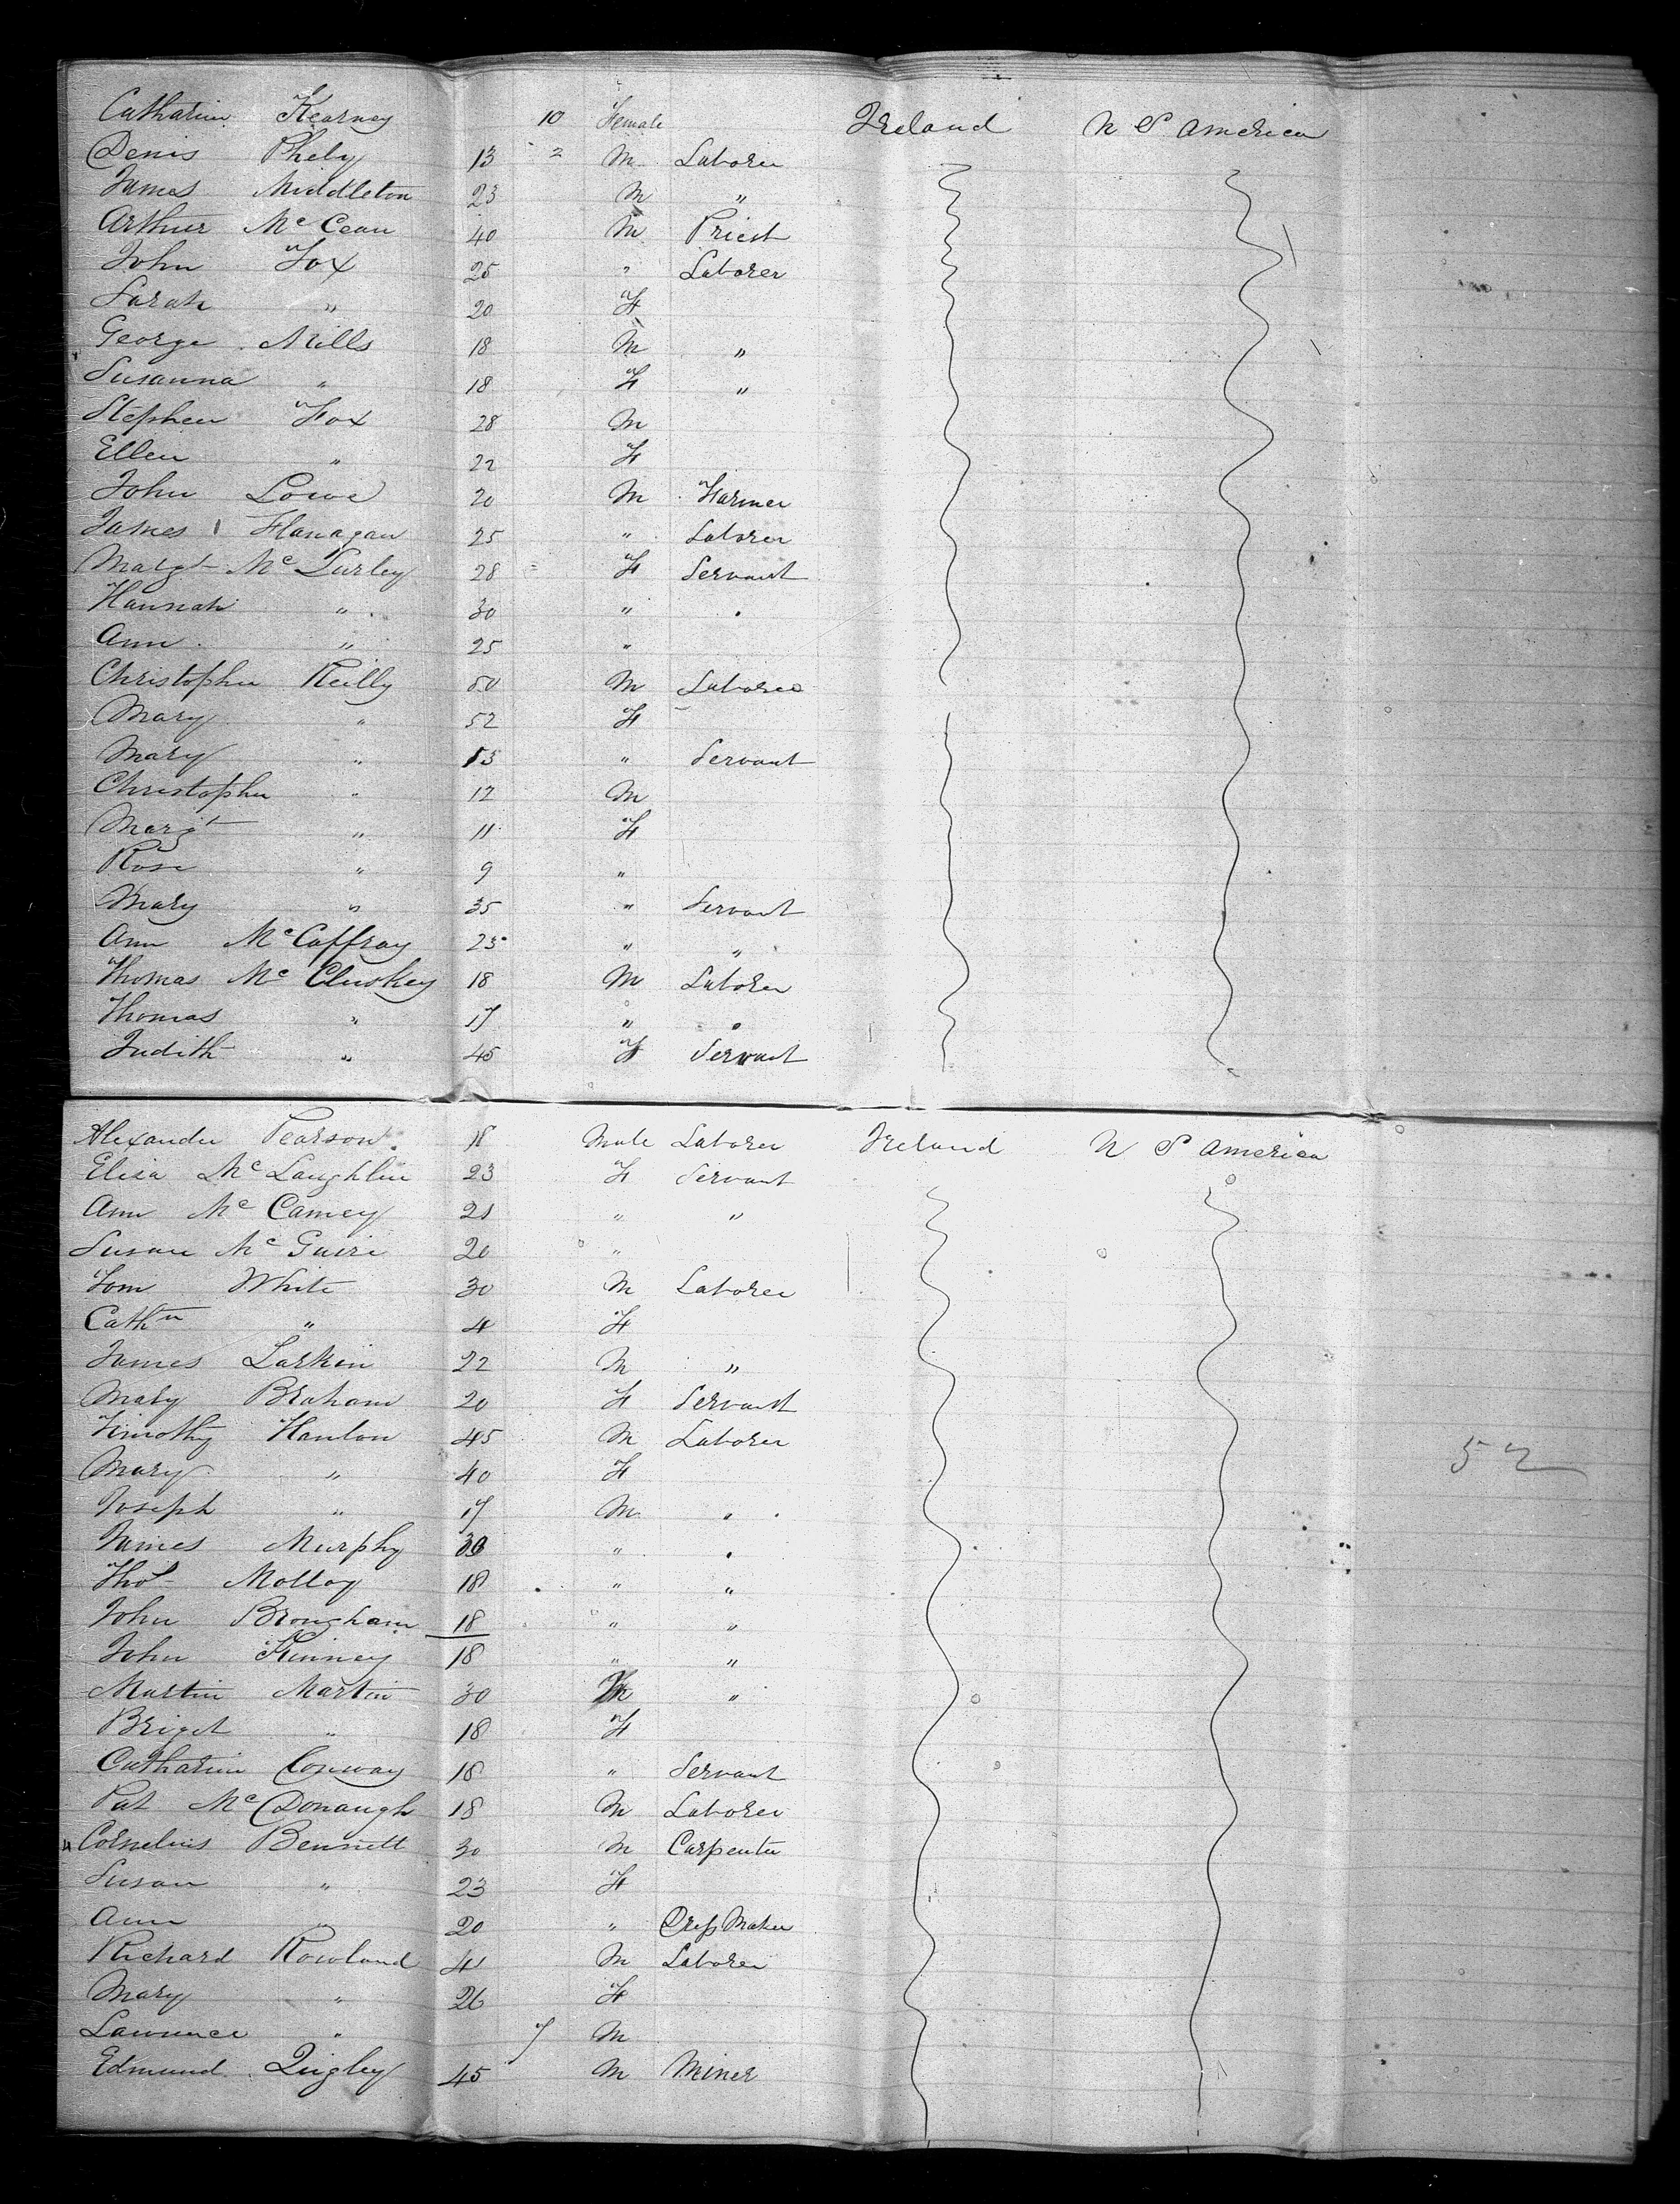 Catharine Kearney 10 Female Ireland U S America
Denis Phely 13 2 M Laborer
James Middleton 23 M "
Arthur Mc Cean 40 M Priest
John Fox 25 " Laborer
Sarah " 20 F
George Mills 18 M "
Susanna " 18 F "
Stephen Fox 28 M
Ellen " 22 F
John Lowe 20 M Farmer
James Flanagan 25 " Laborer
Margt Mc Gurley 28 F Servant
Hannah " 30 " "
Ann " 25 "
Christopher Reilly 50 M Laborer
Mary " 52 F
Mary " 13 " Servant
Christopher " 12 M
Margt " 11 F
Rose " 9 "
Mary " 35 " Servant
Ann McCaffray 25 " "
Thomas Mc Cluskey 18 M Laborer
Thomas " 17 " "
Judith " 45 F Servant
Alexander Pearson 18 Male Laborer Ireland U S America
Eliza McLaughlin 23 F Servant
Ann Mc Camey 21 " "
Susan Mc Guire 20 "
Tom White 30 M Laborer
Cathn " 4 F
James Larkin 22 M "
Mary Braham 20 F Servant
Timothy Hanlon 45 M Laborer
Mary " 40 F 52
Joseph " 17 M "
James Murphy 30 " "
Thos Molloy 18 " "
John Brougham 18 " "
John Kinney 18 " "
Martin Martin 30 M "
Briget " 18 F
Catharine Conway 18 " Servant
Pat McDonaugh 18 M Laborer
Cornelius Bennett 30 M Carpenter
Susan " 23 F
Ann " 20 " Dress Maker
Richard Rowland 41 M Laborer
Mary " 26 F
Lawrence " 7 M
Edmund Quigley 45 M Miner